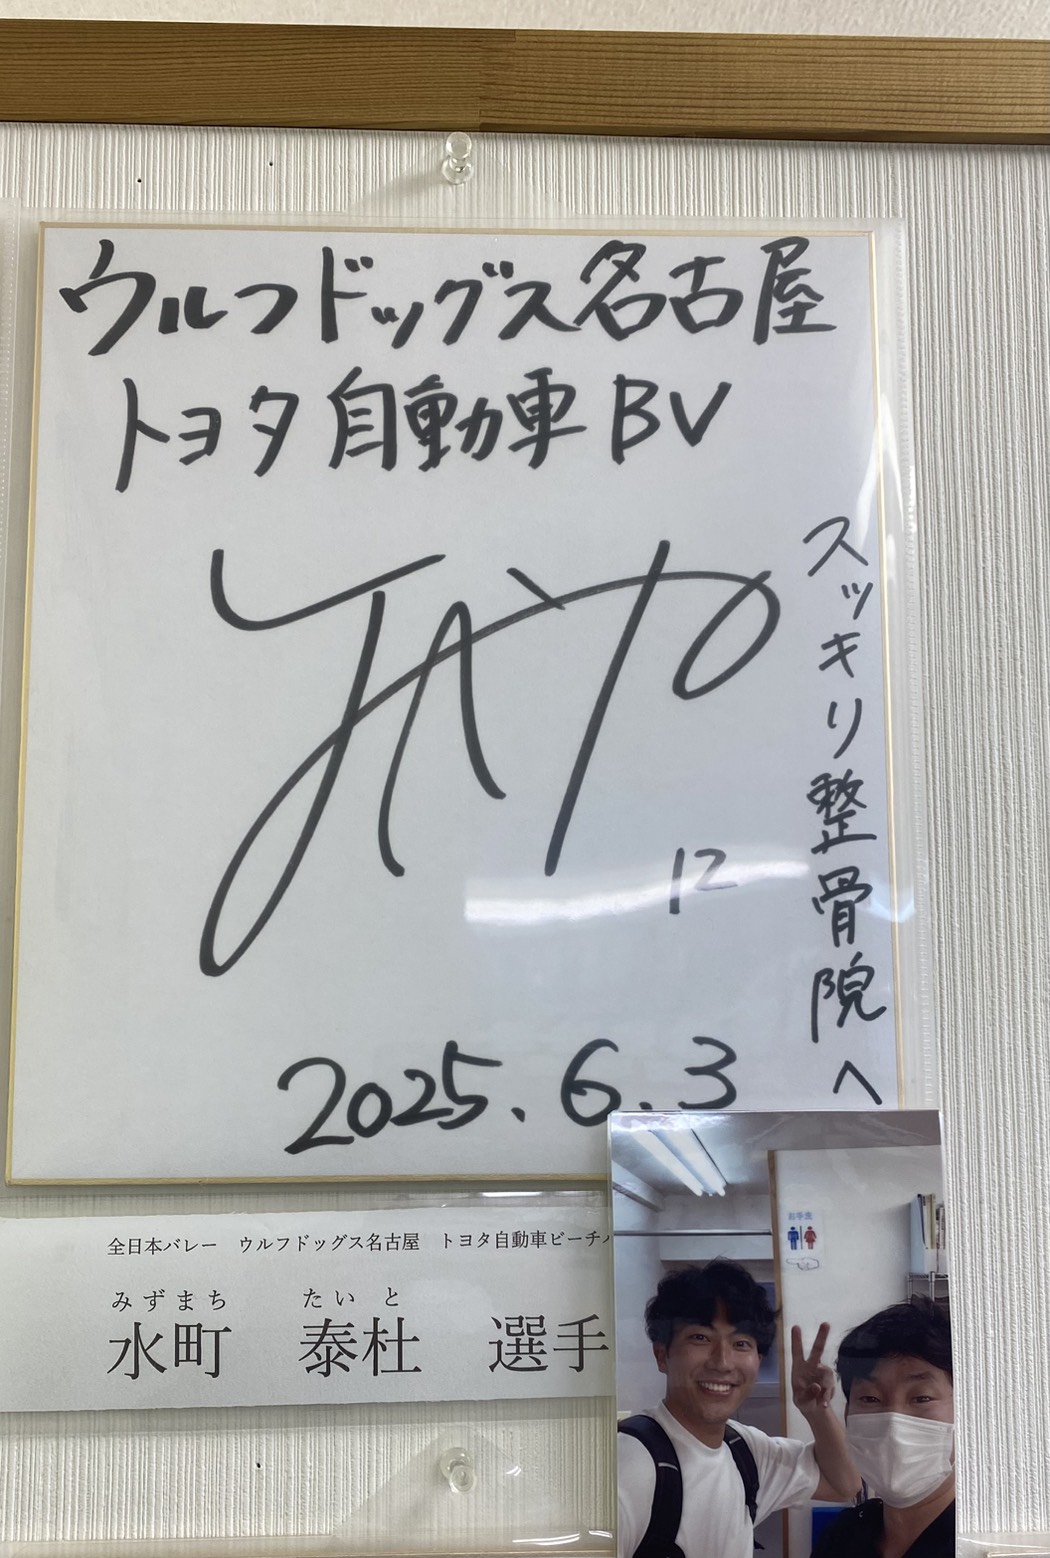 ウルフドッグス名古屋
トヨタ自動車BV
スッキリ整骨院へ
12
2025.6.3
全日本バレー ウルフドッグス名古屋 トヨタ自動車ビーチバ
みずまち たいと
水町 泰杜 選手
お手洗